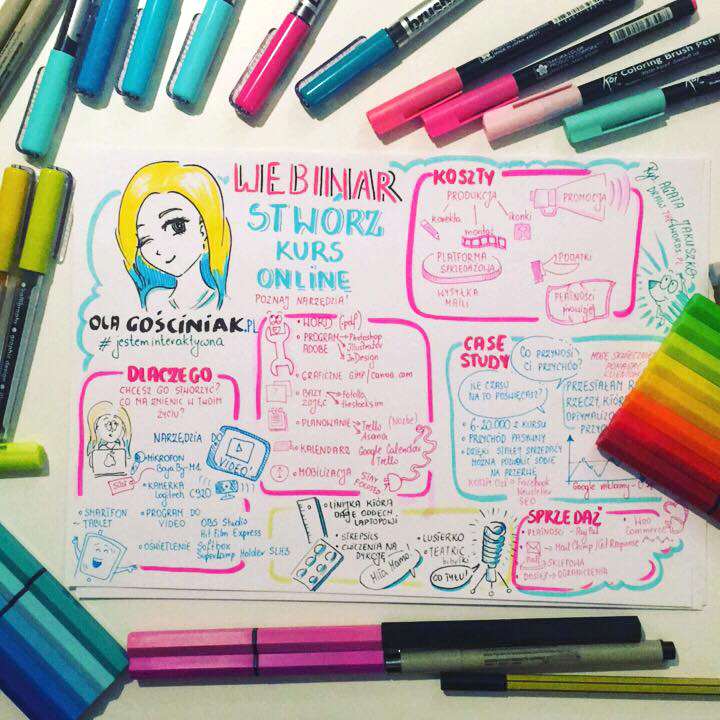 brush
Koi Coloring Brush Pen
Koi
WEBINAR
STWÓRZ
KURS
ONLINE
POZNAJ NARZĘDZIA!
OLA GOŚCINIAK.PL
#jesteminteraktywna
KOSZTY
PRODUKCJA
PROMOCJA
korekta
montaż
ikonki
PLATFORMA
SPRZEDAŻOWA
PODATKI
WYSYŁKA
MAILI
PŁATNOŚCI
Rys. AGATA
JAKUSZKO
DRAW THE
WORDS.PL
DLACZEGO
CHCESZ GO STWORZYĆ?
CO MA ZMIENIĆ W TWOIM
ŻYCIU?
NARZĘDZIA DO
VIDEO!
MIKROFON
Boya By-M1
• KAMERKA
Logitech C920
• SMARTFON
TABLET
• PROGRAM DO
VIDEO
OBS Studio
Hit Film Express
• OŚWIETLENIE Softbox
• WORD (pdf)
• PROGRAM
ADOBE
Photoshop
Illustrator
InDesign
• GRAFICZNE GIMP/canva.com
• BAZY
ZDJĘĆ
Fotolia
thestocks.im
• PLANOWANIE
Trello
Asana
(Nozbe)
• KALENDARZ
Google Calendar
Trello
• MOBILIZACJA
STAY
FOCUSED
CASE
STUDY
CO PRZYNOSI
CI PRZYCHÓD?
ILE CZASU
NA TO POŚWIĘCASZ?
PRZESTAŁAM R
RZECZY, KTÓR
• 6-20.000 Z KURSU
• PRZYCHÓD PASYWNY
• DZIĘKI STAŁEJ SPRZEDAŻY
MOŻNA POZWOLIĆ SOBIE
NA PRZERWĘ
Facebook
Newsletter
SEO
• LINIJKA KTÓRA
DAJE ODDECH
LAPTOPOWI
• STREPSILS
• ĆWICZENIA NA
DYKCJĘ
• LUSTERKO
• TEATRIC
CO TYŁU!
SPRZEDAŻ
• PŁATNOŚĆ - PayPal
Woo
Commerce
Mail Chimp/Get Response
• SKLEPOWA
• DOSTĘP → OGRANICZENIA